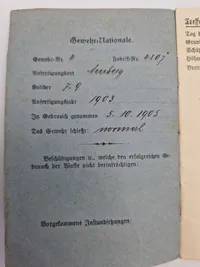 Gewehr-Nationale.
Gewehr-Nr. 4 Fabrik-Nr. 4107
Anfertigungsort
Kaliber 7.9
Anfertigungsjahr 1903
In Gebrauch genommen 5. 10. 1905
Das Gewehr schießt: normal
Beschädigungen u., welche den erfolgreichen Ge-
brauch der Waffe nicht beeinträchtigen:
Vorgekommene Instandsetzungen.
Treff
Tag d